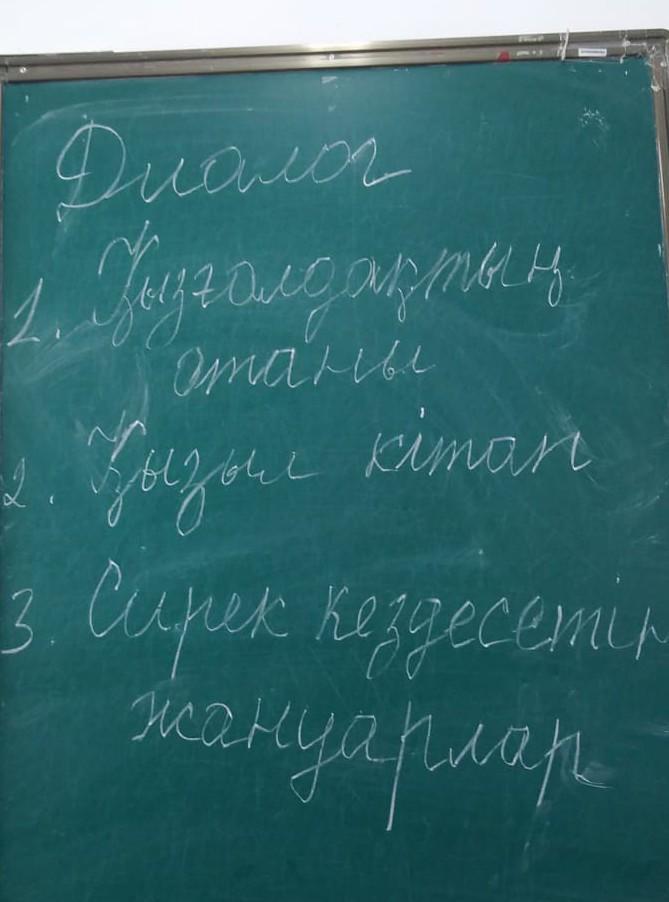 Диалог
1. Қызғалдақтың
отаны
2. Қызыл кітап
3. Сирек кездесетін
жануарлар